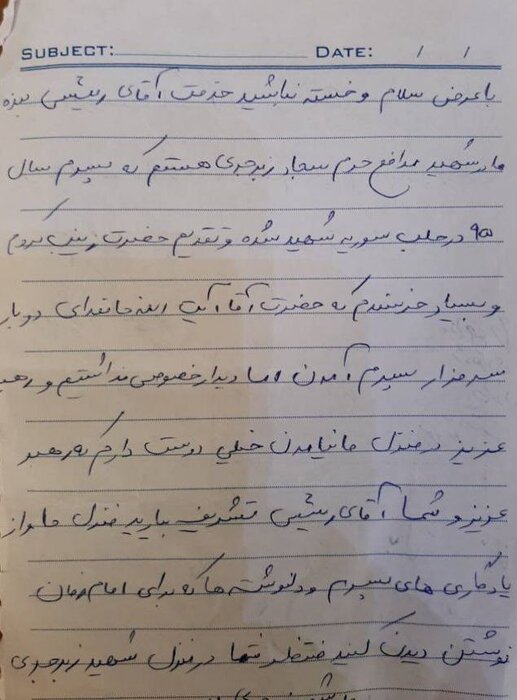 SUBJECT: DATE: / /
با عرض سلام و خسته نباشید خدمت آقای رئیسی بنده
مادر شهید مدافع حرم سجاد زبرجدی هستم که پسرم سال
۹۵ در حلب سوریه شهید شده و تقدیم حضرت زینب کردم
و بسیار خرسندم که حضرت آقا آیت الله خامنه‌ای دوبار
سر مزار پسرم آمدن اما دیدار خصوصی نداشتیم و رهبر
عزیز در منزل ما نیامدن خیلی دوست دارم که رهبر
عزیز و شما آقای رئیسی تشریف بیارید منزل ما و از
یادگاری های پسرم و دلنوشته ها که برای امام زمان
نوشتن دیدن کنید منتظر شما در منزل شهید زبرجدی